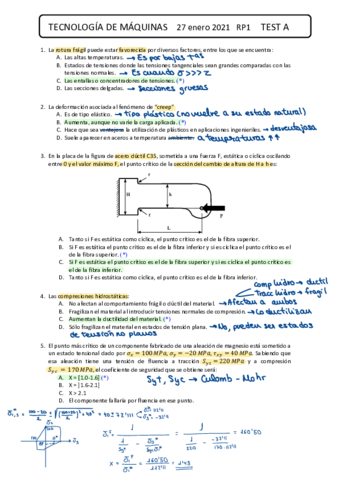 TECNOLOGÍA DE MÁQUINAS 27 enero 2021 RP1 TEST A
1. La rotura frágil puede estar favorecida por diversos factores, entre los que se encuentra:
A. Las altas temperaturas. → Es por bajas tas
B. Estados de tensiones donde las tensiones tangenciales sean grandes comparadas con las
tensiones normales. → Es cuando σ >>> τ
C. Las entallas o concentradores de tensiones. (*)
D. Las secciones delgadas. → Secciones gruesas
2. La deformación asociada al fenómeno de "creep"
A. Es de tipo elástico. → tipo plástica (no vuelve a su estado natural)
B. Aumenta, aunque no varíe la carga aplicada. (*)
C. Hace que sea ventajosa la utilización de plásticos en aplicaciones ingenieriles. → desventajosa
D. Suele aparecer en aceros a temperatura ambiente. → a temperaturas ↑↑
3. En la placa de la figura de acero dúctil C35, sometida a una fuerza F, estática o cíclica oscilando
entre 0 y el valor máximo F, el punto crítico de la sección del cambio de altura de H a h es:
r
H
h
F
r
L
A. Tanto si F es estática como cíclica, el punto crítico es el de la fibra superior.
B. Si F es estática el punto crítico es el de la fibra inferior y si es cíclica el punto crítico es el
de la fibra superior. (*)
C. Si F es estática el punto crítico es el de la fibra superior y si es cíclica el punto crítico es
el de la fibra inferior.
D. Tanto si F es estática como cíclica, el punto crítico es el de la fibra inferior. (*)
comp hidro → dúctil
Tracc hidro → frágil
4. Las compresiones hidrostáticas:
A. No afectan al comportamiento frágil o dúctil del material. → Afectan a ambos
B. Fragilizan el material al introducir tensiones normales de compresión. → Lo ductilizan
C. Aumentan la ductilidad del material. (*)
D. Sólo fragilizan el material en estados de tensión plana. → No, pueden ser estados
de tensión no planos
5. El punto más crítico de un componente fabricado de una aleación de magnesio está sometido a
un estado tensional dado por σx = 100 MPa, σy = −20 MPa, τxy = 40 MPa. Sabiendo que
esa aleación tiene una tensión de fluencia a tracción Syt = 220 MPa y a compresión
Syc = 170 MPa, el coeficiente de seguridad que se obtiene será:
A. X = [1.0-1.6] (*)
B. X = [1.6-2.1]
C. X > 2.1
D. El componente fallaría por fluencia en ese punto.
Syt, Syc → Culomb - Mohr